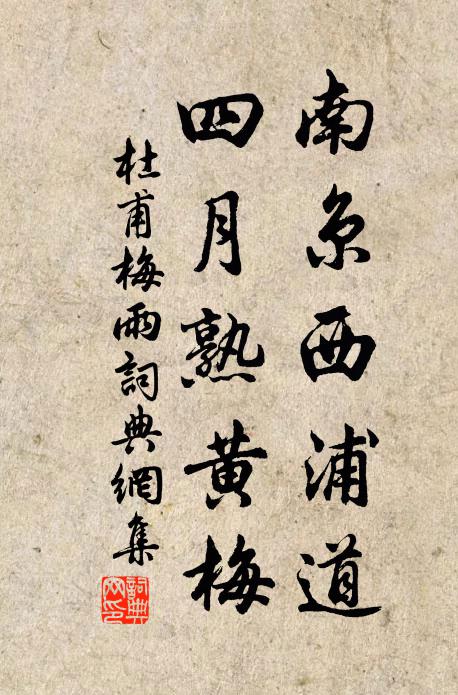 南京西浦道
四月熟黄梅
杜甫梅雨詞典網集
詞典
网印